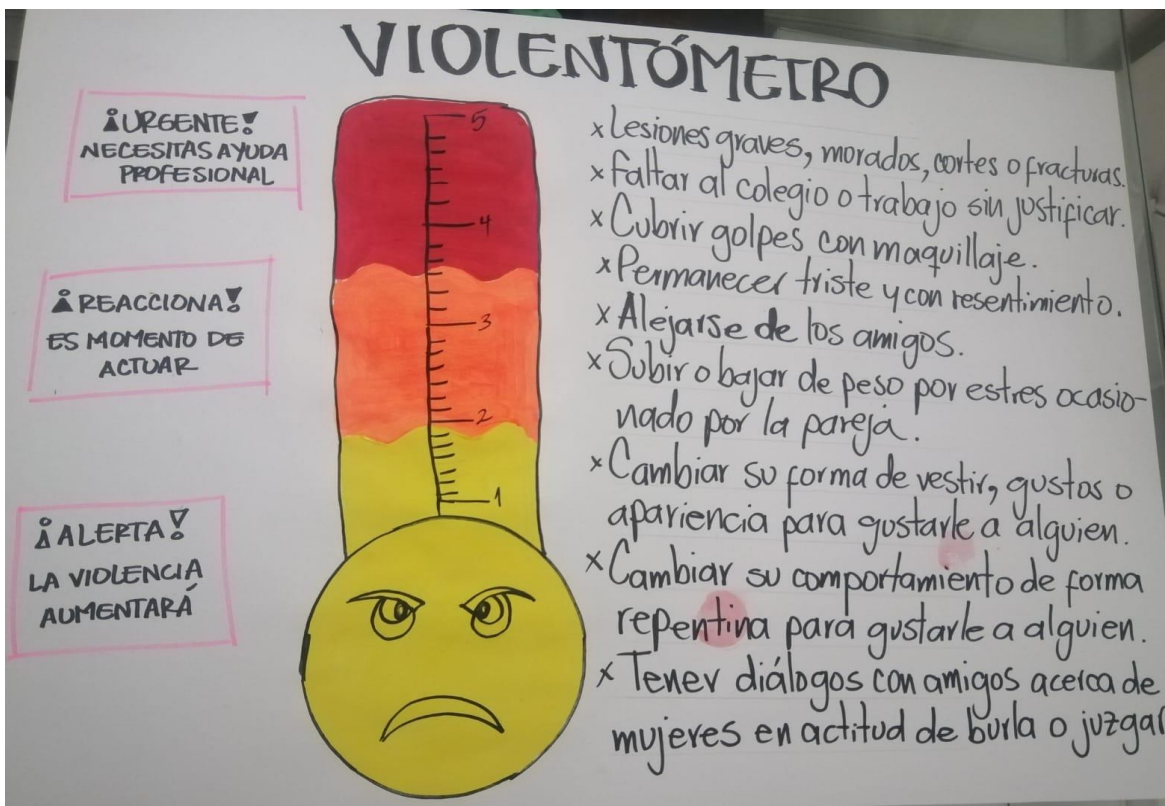 VIOLENTÓMETRO
¡URGENTE!
NECESITAS AYUDA
PROFESIONAL
¡REACCIONA!
ES MOMENTO DE
ACTUAR
¡ALERTA!
LA VIOLENCIA
AUMENTARÁ
5
4
3
2
1
x Lesiones graves, morados, cortes o fracturas.
x faltar al colegio o trabajo sin justificar.
x Cubrir golpes con maquillaje.
x Permanecer triste y con resentimiento.
x Alejarse de los amigos.
x Subir o bajar de peso por estres ocasio-
nado por la pareja.
x Cambiar su forma de vestir, gustos o
apariencia para gustarle a alguien.
x Cambiar su comportamiento de forma
repentina para gustarle a alguien.
x Tener diálogos con amigos acerca de
mujeres en actitud de burla o juzgar